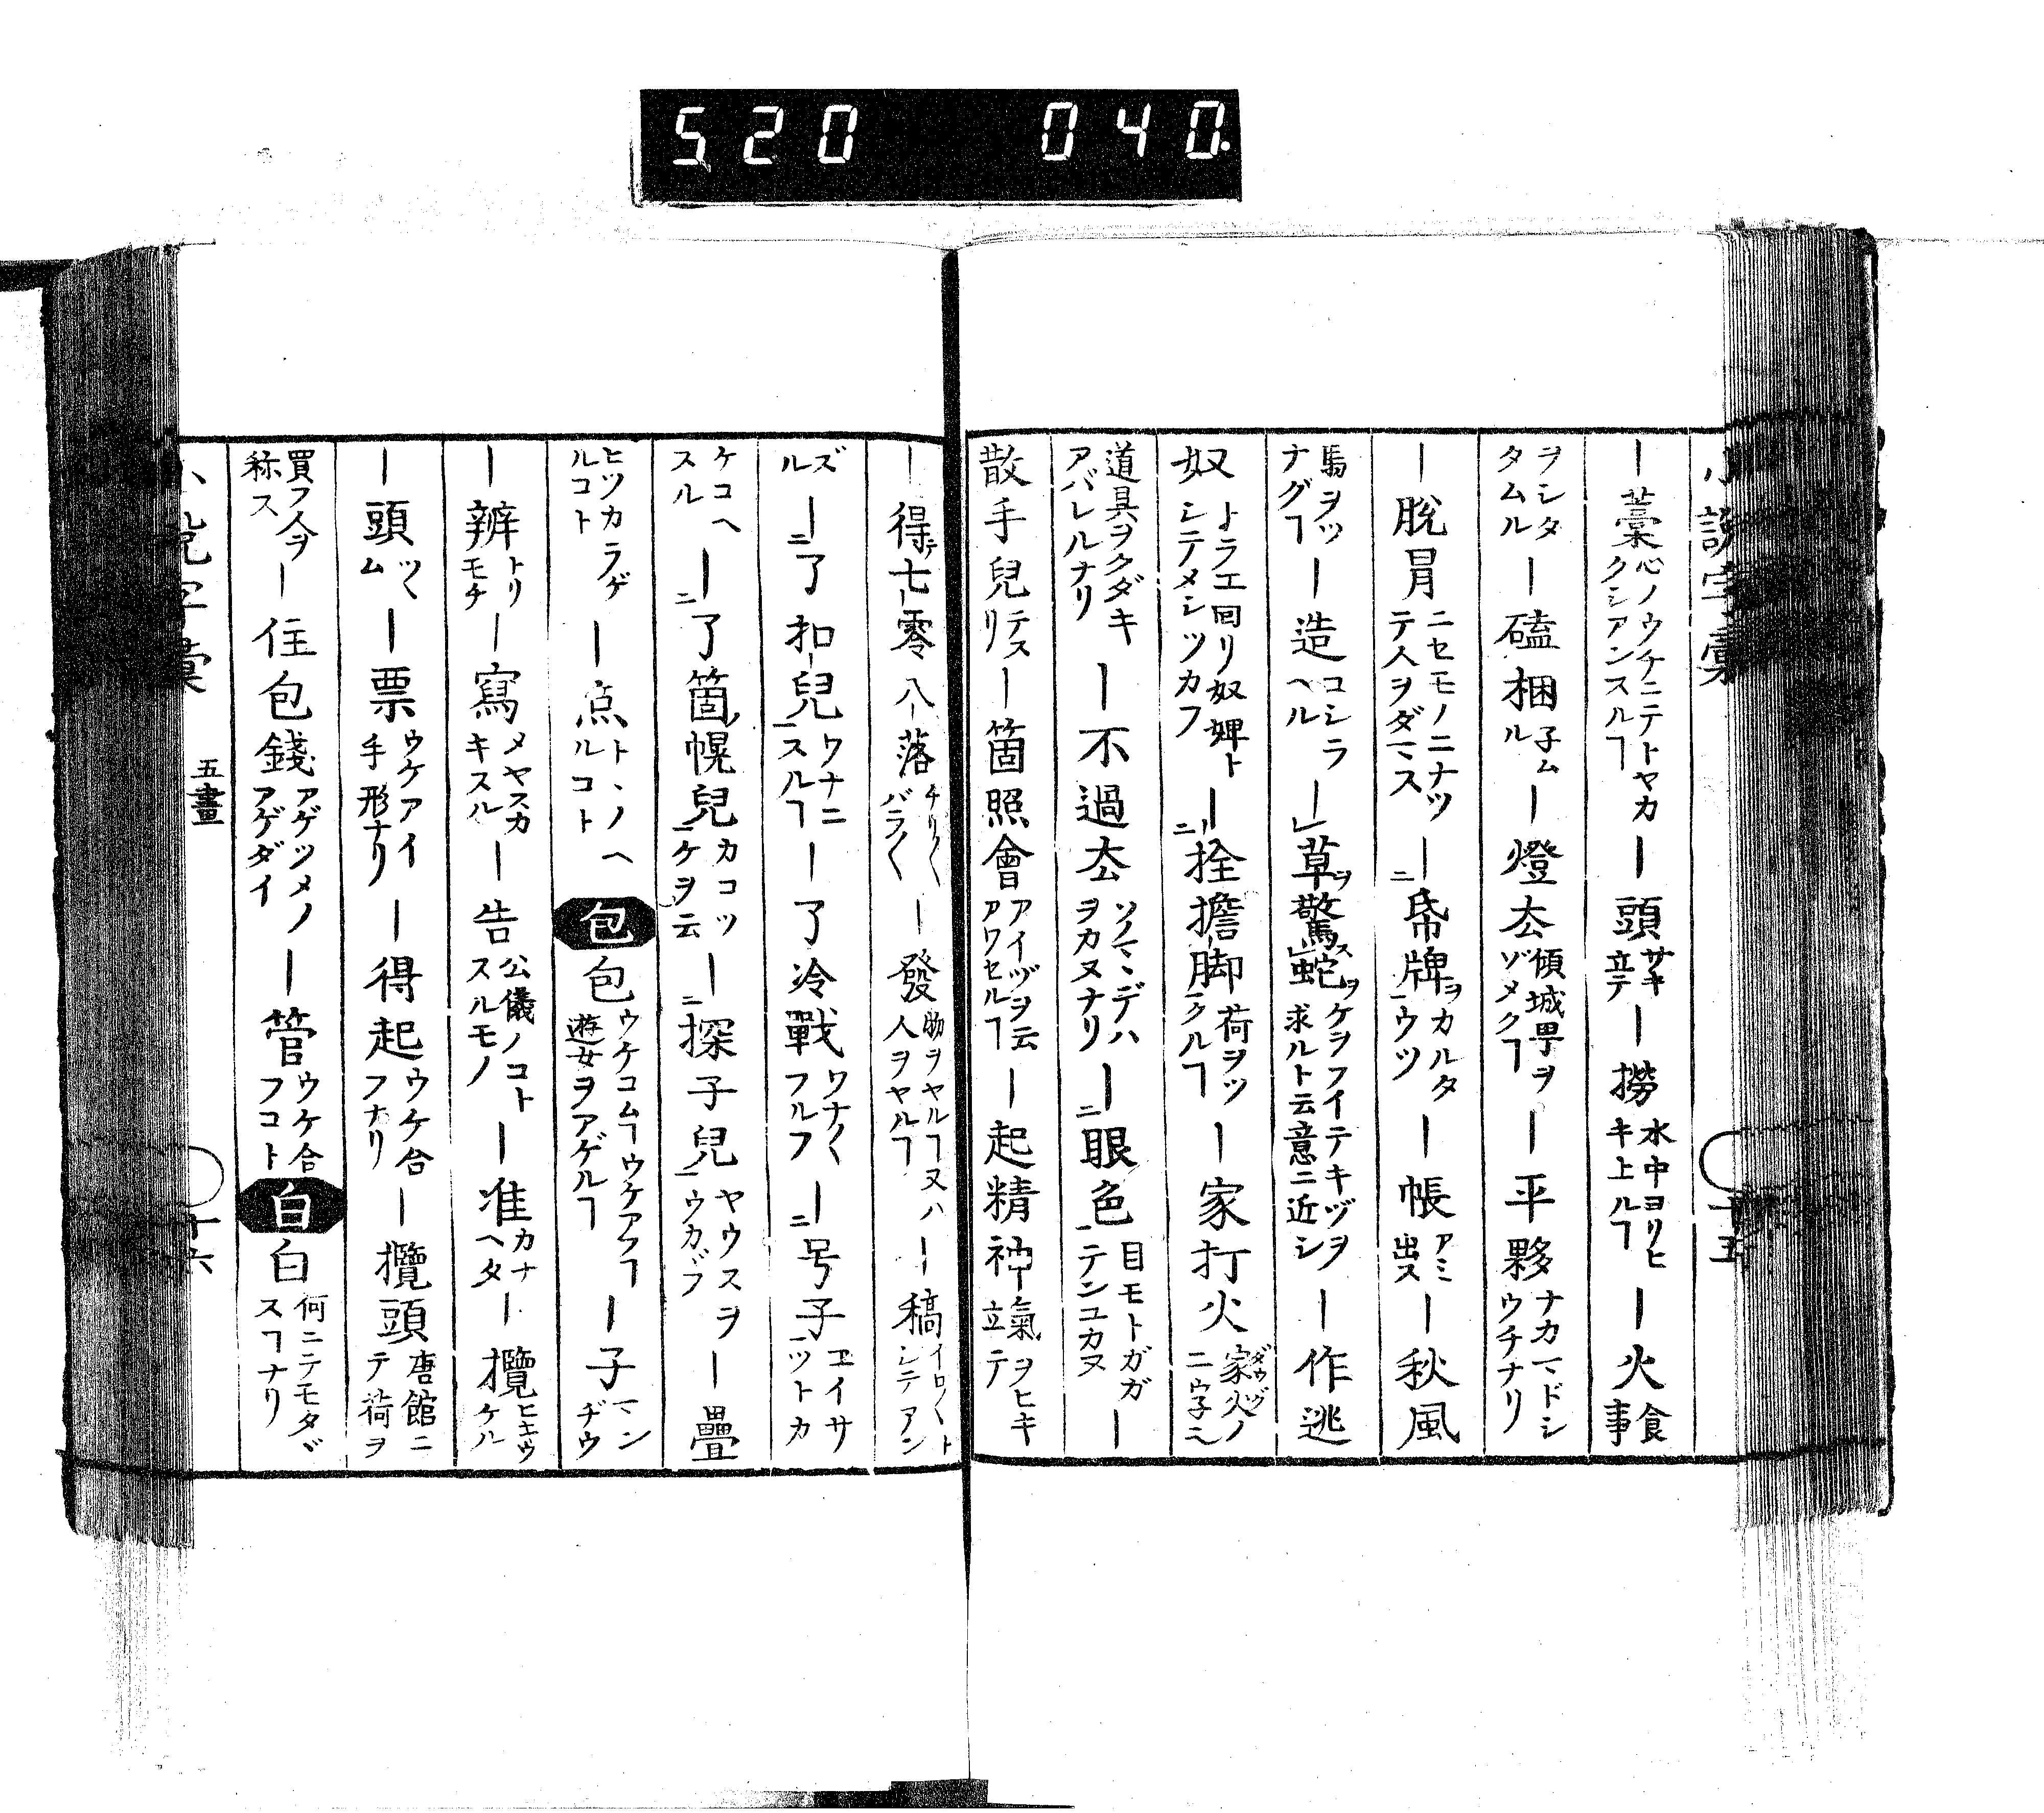 520 040.
小說字彙 十五
｜藁心ノウチニテトヤカクシアンスルヿ｜頭サキ立テ｜撈水中ヨリヒキ上ルヿ｜火食事
ヲシタタムル｜磕㨡子ムル｜燈厺傾城𭻾ヲゾメクヿ｜平夥ナカマドシウチナリ
｜脫冐ニセモノニナツテ人ヲダマス｜帋牌ヲカルタウツ｜帳アミ出ス｜秋風
馬ヲツナグヿ｜造コシラヘル｜草ヲ驚ス蛇ヲケヲフイテキヅヲ求ルト云意ニ近シ｜作逃
奴トラエ回リ奴婢トシテメシツカフ｜拴擔脚荷ヲツクルヿ｜家打火家火ノ二字ニ
道具ヲクダキアバレルナリ｜不過厺ソノマヽデハヲカヌナリ｜眼色目モトガガテンユカヌ｜
散手兒テスリ｜箇照會アイヅヲ云アワセルヿ｜起精神氣ヲヒキ立テ
｜得テ七零八落チリ〳〵バラ〳〵｜發助ヲヤルヿ又ハ人ヲヤルヿ｜稿イロ〳〵トシテアン
ズル｜了扣兒ワナニスルヿ｜了冷戰ワナ〳〵フルフ｜号子エイサツトカ
ケコヘスル｜了箇幌兒カコツケヲ云｜探子兒ヤウスヲウカヾフ｜疊
ヒツカラゲルコト｜点トヽノヘルコト 包 包ウケコムヿウケアフヿ遊女ヲアゲルヿ｜子マンヂウ
｜辨トリモチ｜寫メヤスカキスル｜告公儀ノコトスルモノ｜准カナヘタ｜攬ヒキウケル
｜頭ツヽム｜票ウケアイ手形ナリ｜得起ウケ合フナリ｜攬頭唐館ニテ荷ヲ
買フ今ヲ称ス｜住包錢アゲツメノアゲダイ｜管ウケ合フコト 白 白何ニテモタヾスヿナリ
小說字彙 五畫 十六